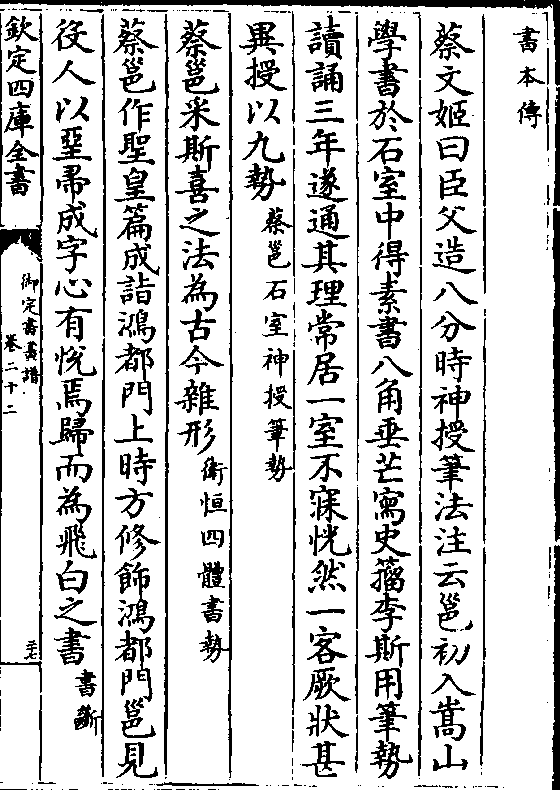 書本傳
蔡文姬曰臣父造八分時神授筆法注云邕初入嵩山
學書於石室中得素書八角垂芒寫史籀李斯用筆勢
讀誦三年遂通其理常居一室不寐恍然一客厥狀甚
異授以九勢蔡邕石室神授筆勢
蔡邕采斯喜之法為古今雜形衛恒四體書勢
蔡邕作聖皇篇成詣鴻都門上時方修飾鴻都門邕見
役人以堊帚成字心有悅焉歸而為飛白之書書斷
欽定四庫全書
御定書畫譜
卷二十二